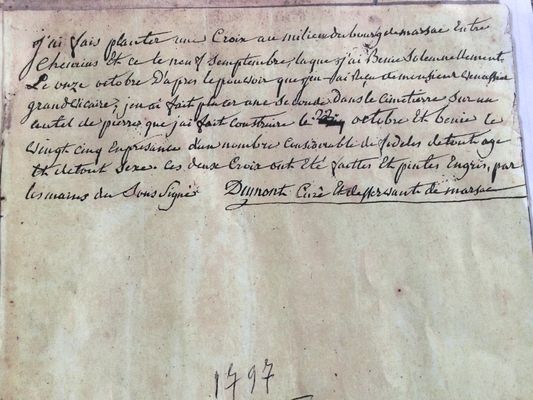 j'ai fais planter une Croix au milieu du bourg de marsac Entre
Et ce le neuf Semptembre, laque j'ai Benie Solennellement
Le onze octobre D'apres le pouvoir que j'en ai Reçu de monsieur
grand Vicaire; jen ai fait placer une Seconde Dans le Cimetierre Sur un
autel de pierre que j'ai fait Construire le octobre Et benie le
vingt cinq En presance dun nombre Considerable de fideles de tout age
Et de tout Sexe. Ces deux Croix ont Eté faittes Et pintes En gris, par
les mains du Sous Signé Dumont Curé Et desservant de marsac
1797